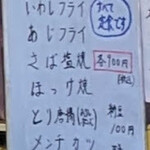 いわしフライ
あじフライ
すべて
定食です
さば塩焼
各900円
(税込)
ほっけ焼
とり唐揚
メンチカツ
納豆
100円